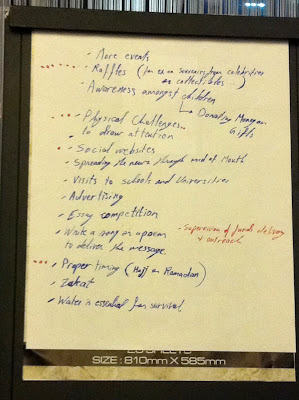 - More events
- Raffles (for ex on souvenirs from celebrities
or collectibles ...)
- Awareness amongst children
Donating Money or
Gifts
- Physical Challenges...
to draw attention
- Social websites
- Spreading the news through word of Mouth
- Visits to schools and Universities
- Advertising
- Essay competition
- Write a song or a poem
to deliver the message
- Supervision of funds delivery
+ outreach
- Proper timing (Hajj or Ramadan)
- Zakat
- Water is essential for survival.
25 SHEETS
SIZE : 810mm X 585mm